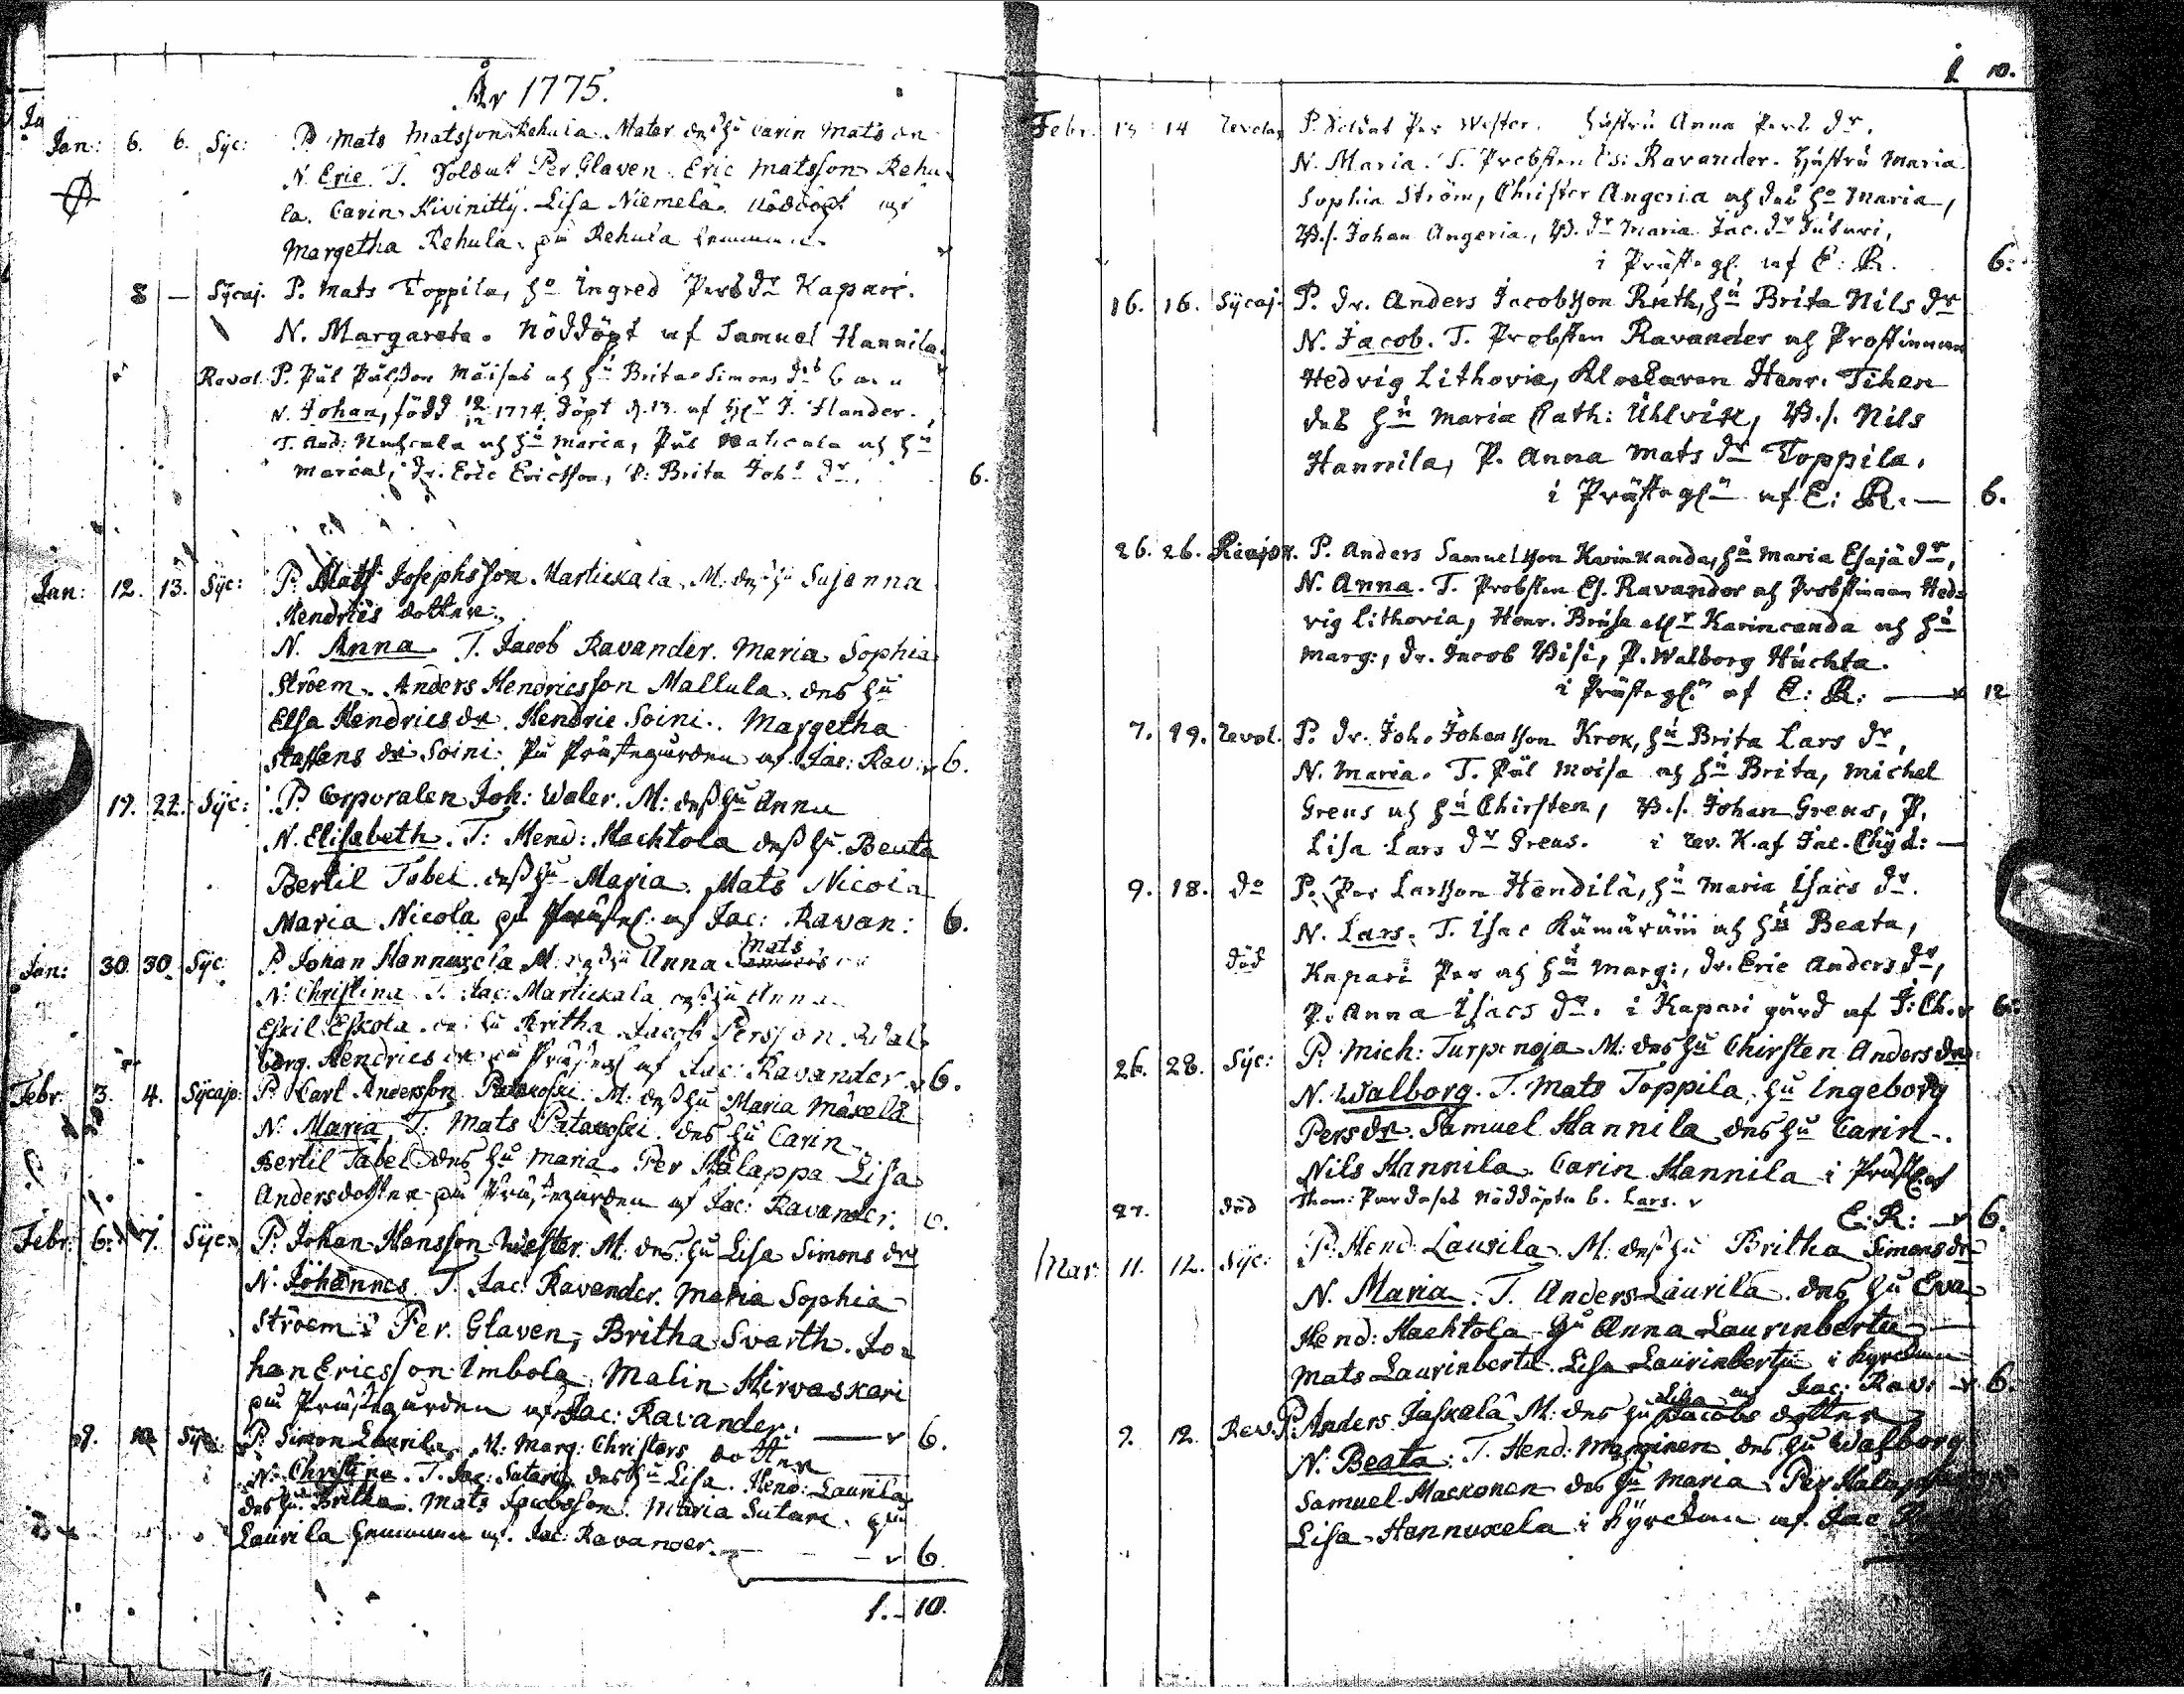 År 1775.
Jan: 6. 6. Syc: P. Mats Matsson Rehula. Mater des hu Carin Mats dr
N. Eric. T. Soldat Per Glaven. Eric Matsson Rehu-
la. Carin Kivinitty. Lisa Niemelä. Nöddöpt af
Margetha Rehula. på Rehula hemman.
8 — Sycaj. P. Mats Toppila, ho Ingred Persdr Kapari.
N. Margareta. Nöddöpt af Samuel Hannila.
Revol. P. Pål Pålsson Maisas och hu Brita Simons dr
N. Johan, född 12/12 1774. döpt d. 13. af J. Flander.
T. And: och hu Maria, Pål och hu
Maria, dr. Eric Ericsson, P: Brita Joh: dr. 6.
Jan: 12. 13. Syc: P. Mats Josephsson Martickala. M. des hu Susanna
Hendrics dotter.
N. Anna. T. Jacob Ravander. Maria Sophia
Ströem. Anders Hendricsson Mallula. des hu
Elsa Hendrics dr. Hendric Soini. Margetha
Staffens dr Soini. På Prästegården af Jac: Rav: 6.
19. 22. Syc: P. Corporalen Joh: Waler. M: dess hu Anna
N. Elisabeth. T: Hend: Hachtola dess hu Beata
Bertil Tabel. dess hu Maria. Mats Nicola
Maria Nicola på Präste: af Jac: Ravan: 6.
Jan: 30 30. Syc: P. Johan Hannuxela M: des hu Anna Mats dr
N: Christina T. Jac: Martickala des hu Anna
Eskil Eskola. des hu Britha. Jacob Persson. Wal-
borg. Hendrics dr på Präste: af Jac: Ravander. 6.
Febr. 3. 4. Sycajo: P. Carl Andersson Patakoski. M: dess hu Maria Mäkelä
N: Maria T: Mats Patakoski. des hu Carin.
Bertil Tabel des hu Maria. Per Halappa Lisa
Andersdotter på Prästegården af Jac: Ravander. 6.
Febr: 6. 7. Syc: P: Johan Hansson Wester. M: des: hu Lisa Simons dr
N: Johannes T. Jac: Ravander. Maria Sophia
Ströem. Per. Glaven, Britha Svarth. Jo-
han Ericsson Imbola. Malin Hirvaskari
på Prästegården af Jac: Ravander. — 6.
9. 10 Syc: P: Simon Laurila. M: Marg: Christers dotter
N: Christina. T. Jac: Sutari des hu Lisa. Hend: Laurila
des hu. Britha. Mats Jacobsson. Maria Sutare. på
Laurila hemman af. Jac: Ravander. — 6.
1. - 10.
1 10.
Febr. 13 14 Tervolas P. Soldat Per Wester. hustru Anna Pers dr.
N. Maria. T. Probsten Es: Ravander. Hustru Maria
Sophia Ström, Christer Angeria och des ho Maria,
Johan Angeria, Maria Jac. dr Sutari,
i Prästegl. af E: R. 6:
16. 16. Sycaj. P. dr. Anders Jacobsson Ruth, hu Brita Nils dr
N. Jacob. T. Probsten Ravander och Prostinnan
Hedvig Lithovia, Klockaren Henr. Tihen
des hu Maria Cath: Uhlvik, Nils
Hannila, P. Anna Mats dr Toppila.
i Prästegln af E: R. — 6.
26. 26. P. Anders Samuelsson Karinkanda, hu Maria Esajä dr,
N. Anna. T. Probsten Es. Ravander och Probstinnan Hed-
vig Lithovia, Henr. Karincanda och hu
Marg:, dr. Jacob Visi, P. Walborg Huchta.
i Prästegln af E: R: — 12
7. 19. Tevol. P. dr. Joh. Johansson Krok, hu Brita Lars dr,
N. Maria. T. Pål Moisa och hu Brita, Michel
Greus och hu Chirsten, Johan Greus, P.
Lisa Lars dr Greus. i Tev. K. af Jac. Chyd: —
9. 18. do P. Per Larsson Hendilä, hu Maria Isacs dr.
N. Lars. T. Isac Kämäräin och hu Beata,
död Kapari Per och hu Marg:, dr. Eric Anders dr,
P. Anna Isacs dr. i Kapari gård af J: Ch. 6:
26. 28. Syc: P. Mich: Turpenoja M: des hu Chirsten Anders dr
N. Walborg. T. Mats Toppila. hu Ingeborg
Pers dr. Samuel Hannila des hu Carin.
Nils Hannila. Carin Hannila i Präst: af
27. död Thom: nöddöpta b. Lars.
E: R: — 6.
Mar: 11. 12. Syc: P: Hend: Laurila. M: dess hu Britha Simonsdr
N. Maria. T. Anders Laurila. des hu Eva
Hend: Hachtola hu Anna Laurinbertu
Mats Laurinbertu. Lisa Laurinbertu i kyrckan
af Jac: Rav: 6.
9. 12. Rev. P: Anders Jaskala M: des hu Lisa Jacobs dotter
N: Beata. T. Hend: des hu Walborg
Samuel Mackonen des hu Maria. Per
Lisa Hannuxela i Kyrckan af Jac